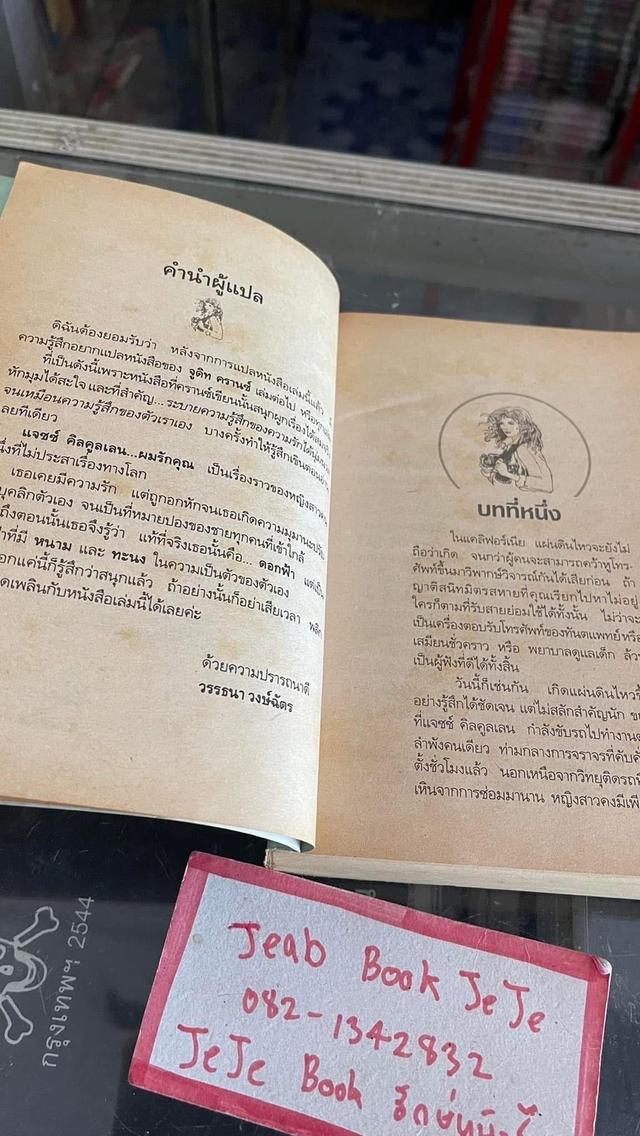 คำนำผู้แปล
ดิฉันต้องยอมรับว่า หลังจากการแปลหนังสือเล่มนี้แล้ว
ความรู้สึกอยากแปลหนังสือของ จูดิท ครานซ์ เล่มต่อไป
ที่เป็นดังนี้เพราะหนังสือที่ครานซ์เขียนนั้นสนุกผูกเรื่องได้
หักมุมได้สะใจ และที่สำคัญ...ระบายความรู้สึกของความรักได้
จนเหมือนความรู้สึกของตัวเราเอง บางครั้งทำให้รู้สึกเขิน
เลยทีเดียว
แจซซ์ คิลคูลเลน...ผมรักคุณ เป็นเรื่องราวของหญิงสาว
ที่ไม่ประสาเรื่องทางโลก
เธอเคยมีความรัก แต่ถูกอกหักจนเธอเกิดความมุมานะ
บุคลิกตัวเอง จนเป็นที่หมายปองของชายทุกคนที่เข้าใกล้
ถึงตอนนั้นเธอจึงรู้ว่า แท้ที่จริงเธอนั้นคือ... ดอกฟ้า
ที่มี หนาม และ ทะนง ในความเป็นตัวของตัวเอง
แค่นี้ก็รู้สึกว่าสนุกแล้ว ถ้าอย่างนั้นก็อย่าเสียเวลา
เพลินกับหนังสือเล่มนี้ได้เลยค่ะ
ด้วยความปรารถนาดี
วรรธนา วงษ์ฉัตร
บทที่หนึ่ง
ในแคลิฟอร์เนีย แผ่นดินไหวจะยังไม่
ถือว่าเกิด จนกว่าผู้คนจะสามารถคว้าหูโทร-
ศัพท์ขึ้นมาวิพากษ์วิจารณ์กันได้เสียก่อน ถ้า
ญาติสนิทมิตรสหายที่คุณเรียกไปหาไม่อยู่
ใครก็ตามที่รับสายย่อมใช้ได้ทั้งนั้น ไม่ว่าจะ
เป็นเครื่องตอบรับโทรศัพท์ของทันตแพทย์หรือ
เสมียนชั่วคราว หรือ พยาบาลดูแลเด็ก ล้วน
เป็นผู้ฟังที่ดีได้ทั้งสิ้น
วันนี้ก็เช่นกัน เกิดแผ่นดินไหว
อย่างรู้สึกได้ชัดเจน แต่ไม่สลักสำคัญนัก
ที่แจซซ์ คิลคูลเลน กำลังขับรถไปทำงาน
ลำพังคนเดียว ท่ามกลางการจราจรที่คับคั่ง
ตั้งชั่วโมงแล้ว นอกเหนือจากวิทยุติดรถที่
เหินจากการซ่อมมานาน หญิงสาวคงมีเพี
กรุงเทพฯ 2544
Jeab Book JeJe
082-1342832
JeJe Book